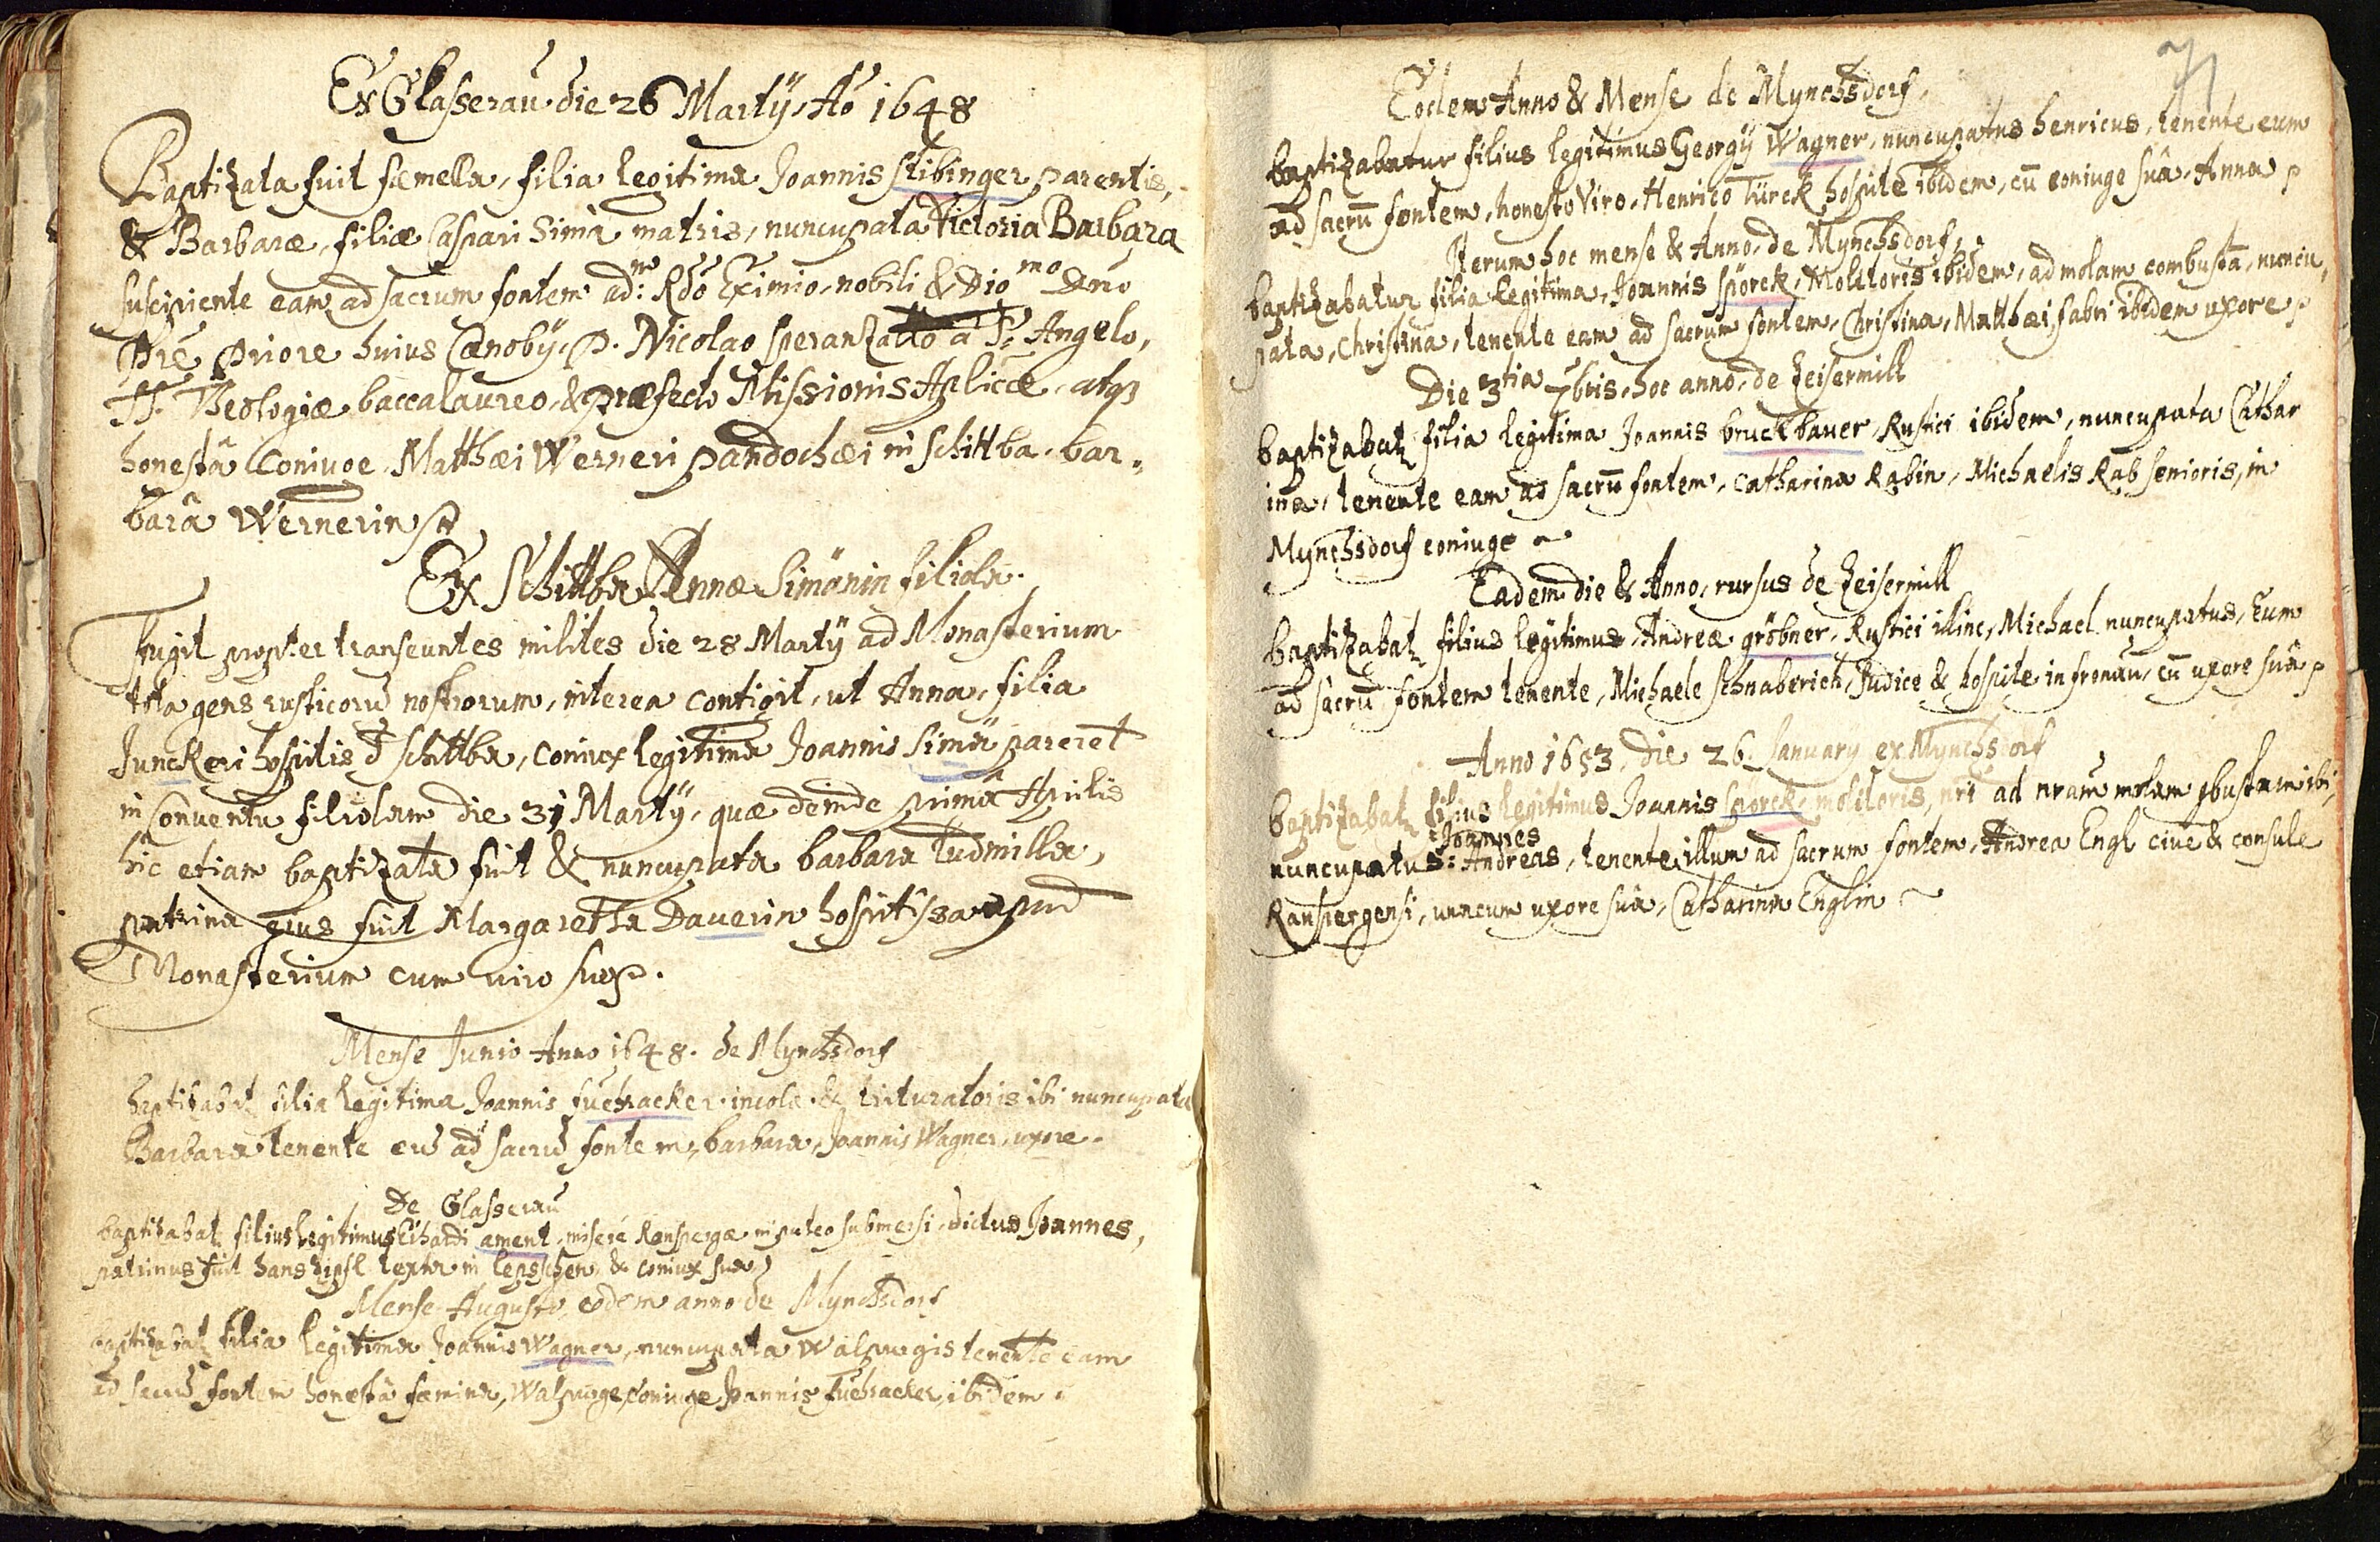 Ex Glasserau die 26 Martÿ Aõ 1648
Baptizata fuit fæmella, filia legitima Joannis Stibinger parentis,
& Barbaræ, filiæ Caspari Simä matris, nuncupata Victoria Barbara
suscipiente eam ad sacrum fontem ad: m Rdo Eximio, nobili & Dio mo Dno
Pre Priore huius Cænobÿ, P. Nicolao Speranzatto a S. Angelo,
SS. Theologiæ baccalaureo, & Præfecto Missionis Aplicæ, atqz
honestâ Coniuge Matthæi Werneri Pandochæi in Schittba, Bar„
barâ Wernerin
Ex Schittba Annæ Simönin filiola.
Fugit propter transeuntes milites die 28 Martÿ ad Monasterium
tota gens rusticorũ nostrorum, interea contigit, ut Anna, filia
Junckeri hospitis d Schittba, coniux legitima Joannis Simä pareret
in Conventu filiolam die 31 Martÿ, quæ deinde primâ Aprilis
hic etiam baptizata fuit & nuncupata barbara Ludmilla,
patrina eius fuit Margaretha Dauerin hospitissa apud
Monasterium cum viro suo p.
Mense Junio Anno 1648. de Mynchsdorf
baptizabat filia legitima Joannis fuchsacker incolæ & trituratoris ibi nuncupata
Barbara tenente eũ ad sacrũ fontem, barbara, Joannis Wagner, uxore.
De Glasserau
baptizabat filius legitimus Lihardi ament, miserè Ronspergæ in puteo submersi, dictus Joannes,
patrinus fuit hans textor in & coniux sua
Mense Augusto eodem anno de Mynchsdorf
baptizabat filia legitima Joannis Wagner, nuncupata Walpurgis tenente eam
ad sacrũ fontem honestâ fæmina, Walpurge, Coniuge Joannis Fuchsacker, ibidem.
71
Eodem Anno & Mense de Mynchsdorf,
baptizabatur filius legitimus Georgÿ Wagner, nuncupatus henricus, tenente eum
ad sacrũ fontem, honesto Viro, Henrico Türck hospite ibidem, cũ coniuge suâ, Anna p
Iterum hoc mense & Anno, de Mynchsdorf,
baptizabatur filia legitima, Joannis spörck, Molitoris ibidem, ad molam combustã, nuncu„
pata, Christina, tenente eam ad sacrum fontem, Christina, Matthæi, fabri ibidem uxore p
Die 3tia 7bris, hoc anno, de Zeisermill
baptizabat filia legitima Joannis bruckbauer, Rustici ibidem, nuncupata Cathar
ina, tenente eam ad sacrũ fontem, Catharina Rabin, Michaelis Rab senioris, in
Mynchsdorf coniuge
Eadem die & Anno, rursus de Zeisermill
baptizabat filius legitimus, Andreæ gröbner, Rustici illinc, Michael nuncupatus, Eum
ad sacrũ fontem tenente, Michaele Schnaberich, Judice & hospite in fronau, cũ uxore suâ p
Anno 1653, die 26. January ex Mynchsdorf
baptizabat filius legitimus Joannis Sporck, molitoris, nri ad nram molam cbustam ibi,
Joannes
nuncupatus: Andreas, tenente illum ad sacrum fontem, Andrea Engl cive & consule
Ranspergensi, unacum uxore suâ, Catharina Englin